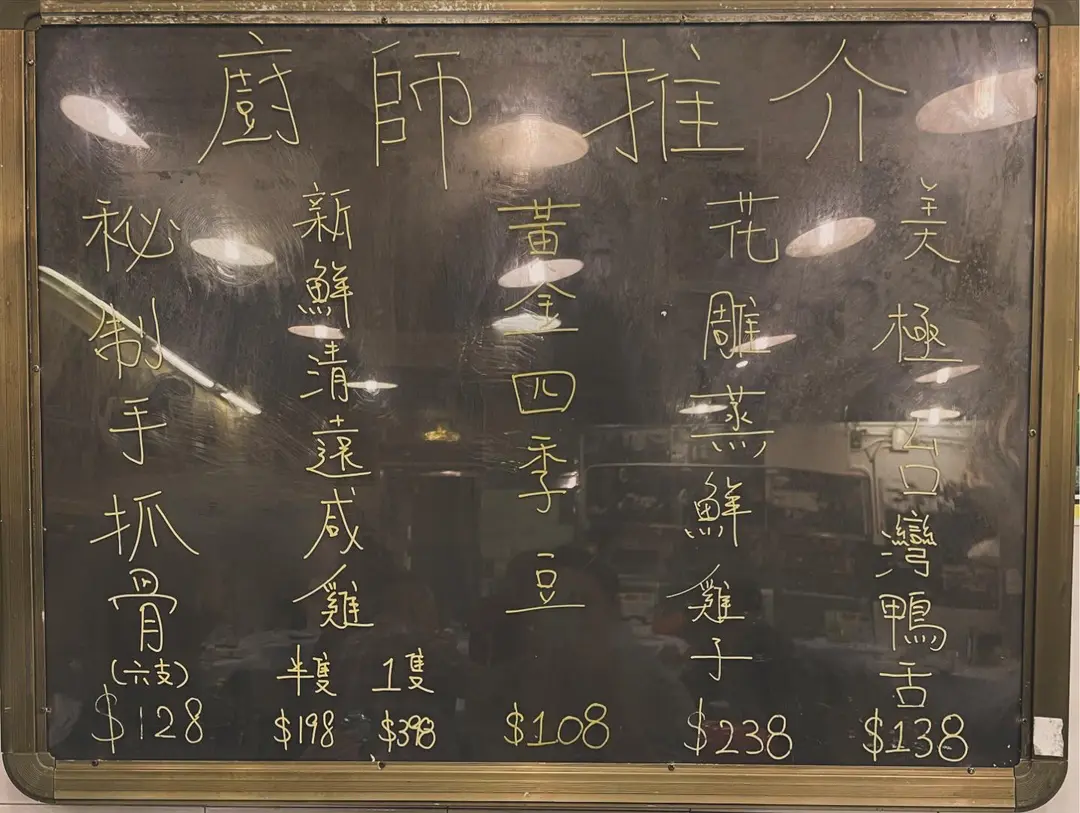 廚師推介
美極台灣鴨舌
$138
花雕蒸鮮雞子
$238
黃金四季豆
$108
新鮮清遠咸雞
半隻 1隻
$198 $398
祕制手抓骨
(六支)
$128